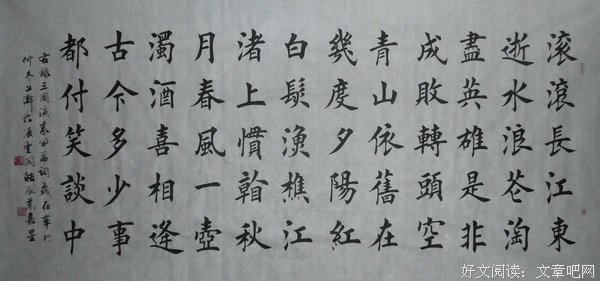 滚滚長江東
逝水浪花淘
盡英雄是非
成敗轉頭空
青山依舊在
幾度夕陽紅
白髮漁樵江
渚上慣看秋
月春風一壺
濁酒喜相逢
古今多少事
都付笑談中
右録三國演義開篇詞歲在辛卯
仲冬上澣於
好文阅读：文章吧网